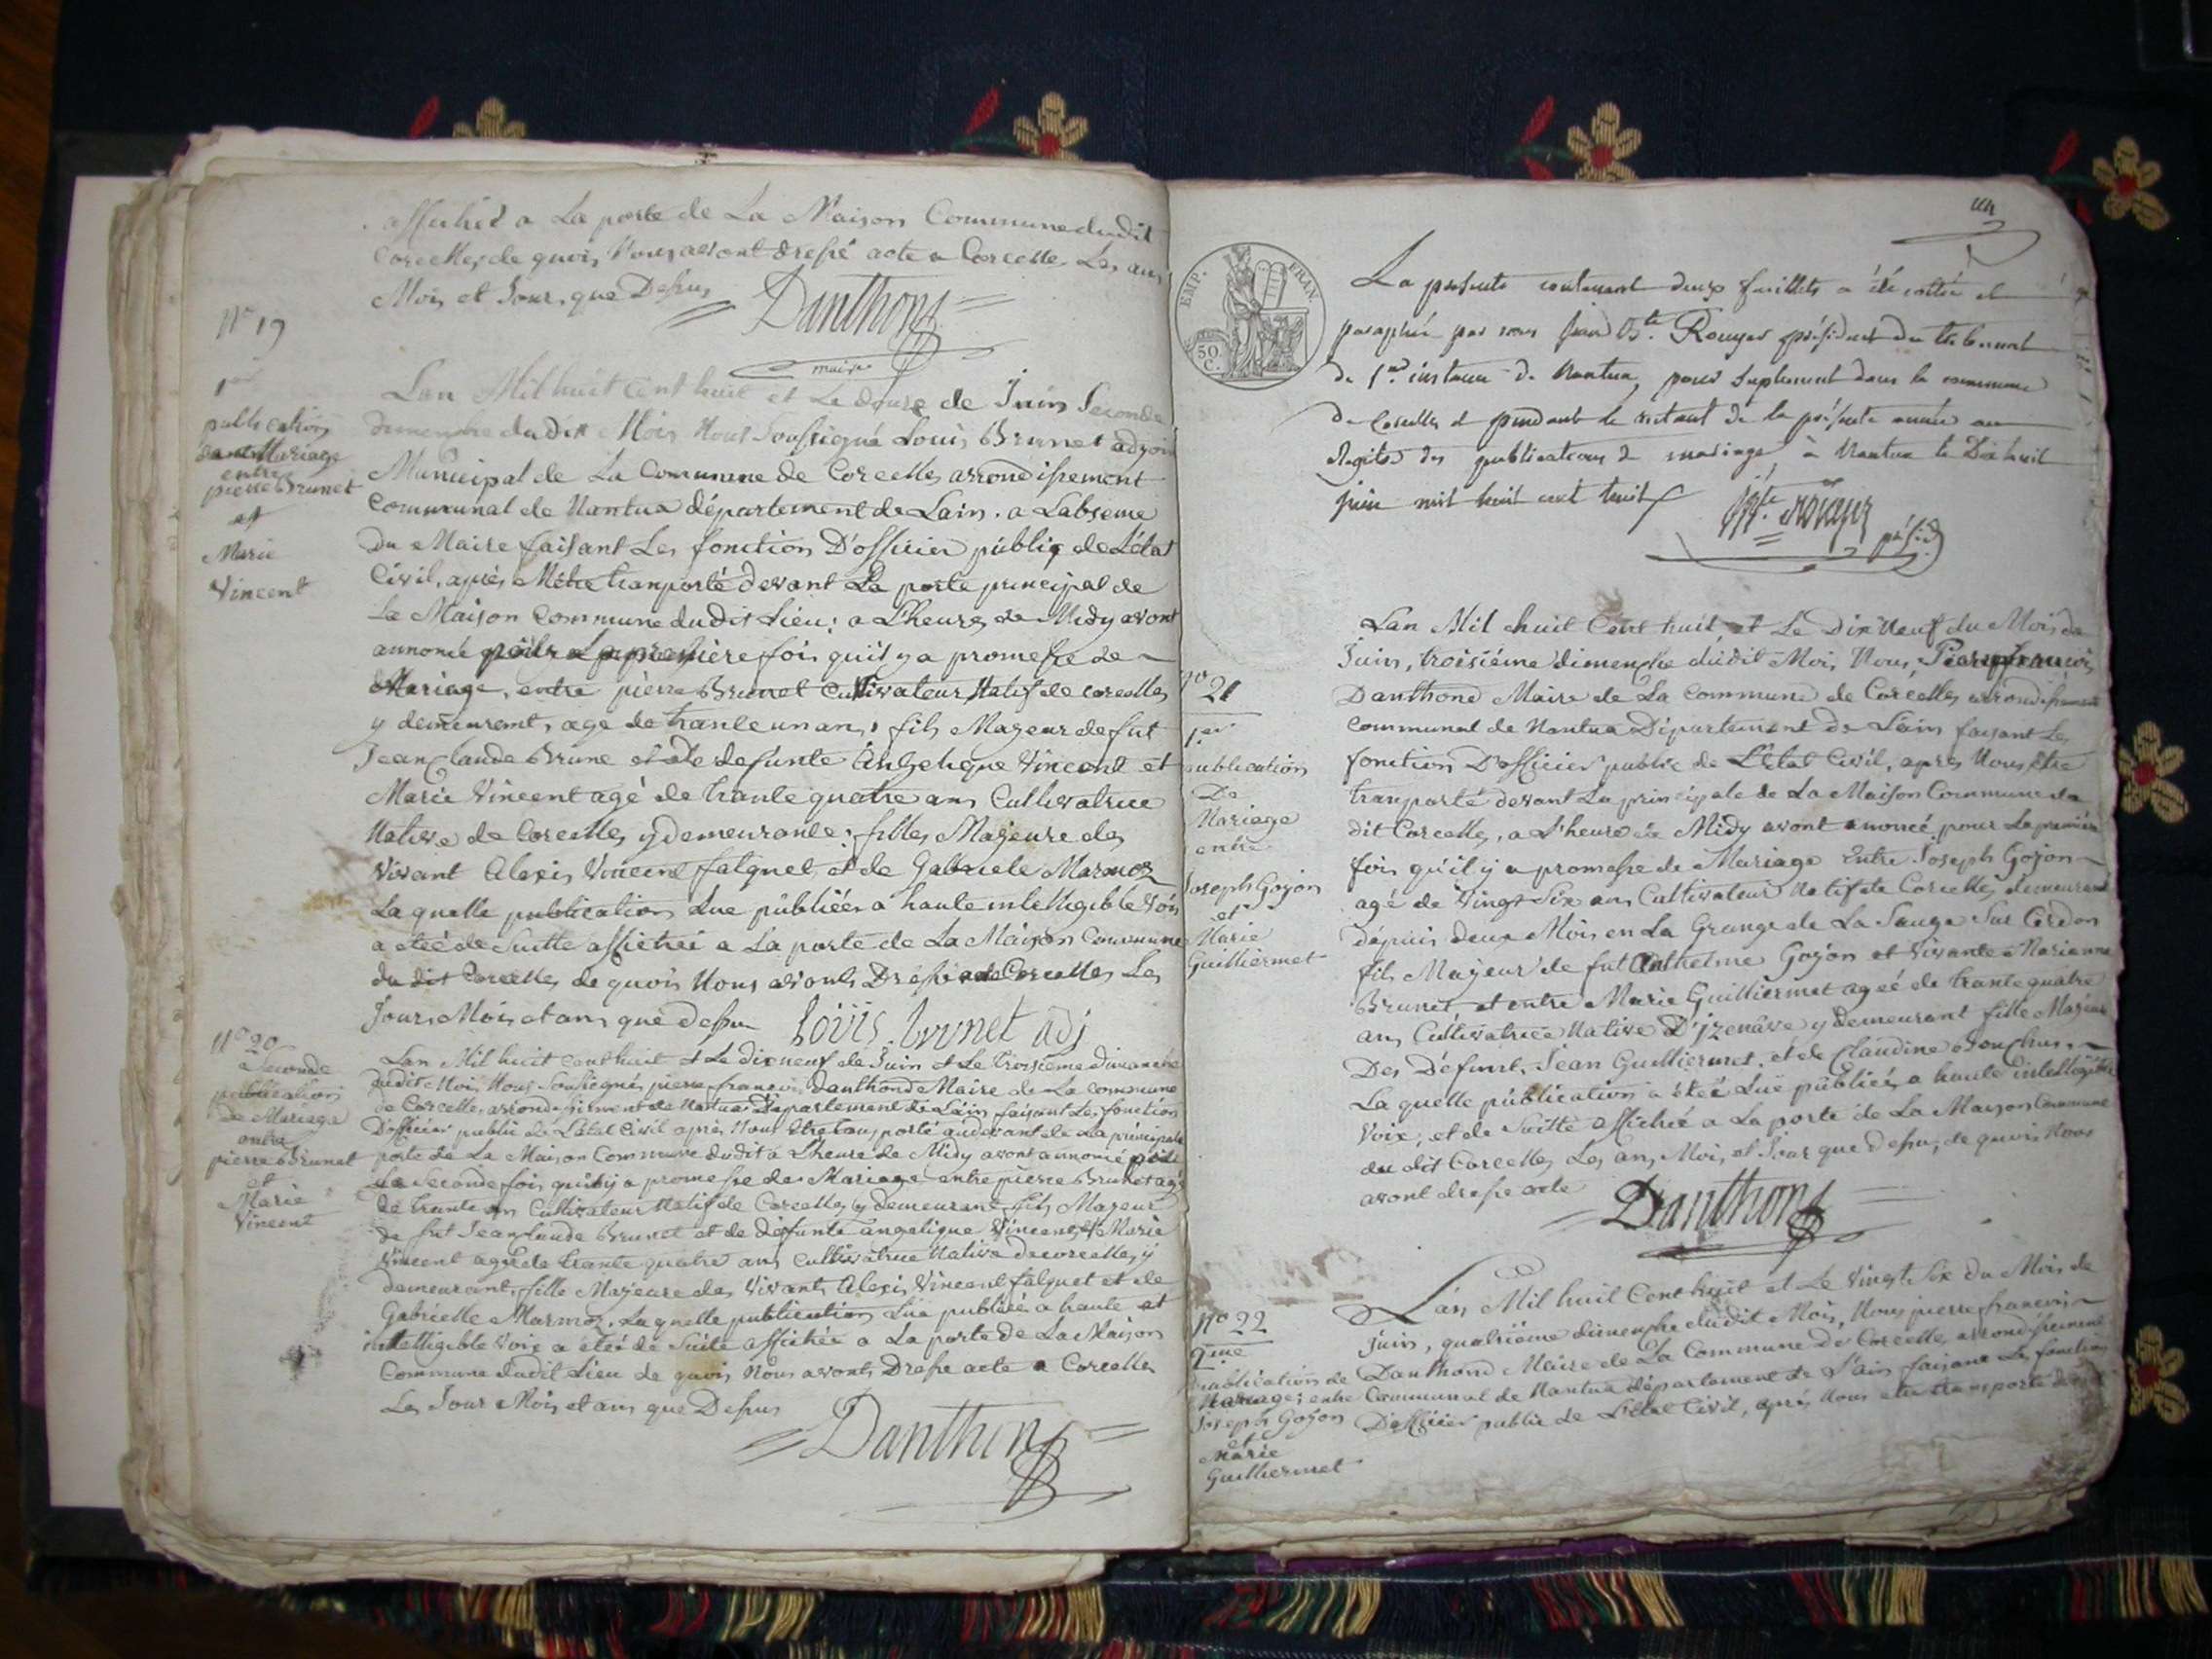 affichés a La porte de La Maison Commune dudit
Corcelles de quois Nous avont dressé acte a Corcelle Les ans
Mois et Jours que Dessus
Danthon
maire
N° 19
1ere
publication
de Mariage
entre
pierre Brunet
et
Marie
Vincent
Lan Mil huit Cent huit et Le douze de Juin Seconde
dimenche du dit Mois Nous Soussigné Louis Brunet adjoin
Municipal de La Commune de Corcelles arrondissement
Communal de Nantua département de Lain. a Labseme
du Maire faisant Les fonction D'officier publiq de Létat
Civil, après Mètre tranporté devant La porte principal de
La Maison Commune du dit Lieu; a L'heure de Midy avont
annoncé pour La premiére fois quil y a promesse de
Mariage, entre pierre Brunet Cultivateur Natif de Corcelles
y demeurant, age de trante un ans, fils Majeur de fut
Jean Claude Brune et de defunte Angeliqque Vincent et
Marie Vincent agé de trante quatre ans Cultivatrice
Native de Corcelles y demeurante; filles Majeure des
Vivant Alexis Vincent falquet, et de Gabriele Marmoz
La quelle publication Lue publiées a haute intelligible Vois
a eteé de Suitte affichéi a La porte de La Maison Commune
du dit Corcelles de quois Nous avonts Dressé acte Corcelles Les
Jours Mois et ans que dessu
Louis brunet adj
N° 20
Seconde
publication
de Mariage
entre
pierre Brunet
et
Marie
Vincent
Lan Mil huit cent huit et Le dixneuf de Juin et Le troisieme Dimanche
dudit Mois, Nous Soussignés pierre francois Danthond Maire de La Commune
de Corcelle, arrondissement de Nantua Département de Lain faisant Les fonction
Dofficier public de Létat Civil après Nous être tansporté audevant de La principale
porte de La Maison Commune dudit a Lheure de Midy avont annoncé pour
La Seconde fois quil y a promesse de Mariage entre pierre Brunet agé
de trante un Cultivateur Natif de Corcelles y demeurant, fils Majeur
de fut Jean Claude Brunet et de défunte angelique Vincent, et Marie
Vincent agée de trante quatre ans Cultivatrice Native de corcelles, y
demeurant, fille Majeure des Vivant, Alexis Vincent falquet et de
Gabrielle Marmoz. La quelle publication Lüe publiée a haute et
intelligible Voix a etéé de Suite affichée a La porte de La Maison
Commune dudit Lieu de quois Nous avonts Dressé acte a Corcelles
Les Jour Mois et ans que Dessus
Danthon
EMP. FRAN.
50 C.
La présente contenant deux feuillets a été cottée et
paraphée par nous Jean Bte. Rouyer président du tribunal
de 1re instance de Nantua, pour Suplement dans la commune
de Corcelles et pendant le restant de la présente année au
Registre des publications de mariage, à Nantua le Dix huit
juin mil huit cent huit
présid
N° 21
1ere
publication
De
Mariage
entre
Joseph Gojon
et
Marie
Guilliermet
Lan Mil huit Cent huit, et Le Dix Neuf du Mois de
Juin, troisiéme dimenche du dit Mois, Nous, Pierre francois
Danthond Maire de La Commune de Corcelles arrondissement
Communal de Nantua Département de L'ain faisant Les
fonction D'officier public de L'état Civil, après Nous être
tranporté devant La principale de La Maison Commune du
dit Corcelles, a L'heure de Midy avont anoncé pour La premiére
fois qu'il y a promesse de Mariage Entre Joseph Gojon
agé de Vingt Six ans Cultivateur Natif de Corcelles, demeurant
dépuis deux Mois en La Grange de La Sauge Sur Cerdon
fils Majeur de fut Anthelme Gojon et Vivante Marianne
Brunet et entre Marie Guilliermet ageé de trante quatre
ans Cultivatrice Native D'jzenâve y demeurant fille Majeur
Des Défunt, Jean Guilliermet, et de Claudine
La quelle publication a étéé Luë publiée a haute intelligible
Voix, et de Suitte affichée a La porte de La Maison Commune
du dit Corcelles Les ans, Mois, et Jour que dessu, de quois Nous
avont dressé acte
Danthon
N° 22
2.me
publication de
Mariage; entre
Joseph Gojon
et
Marie
Guilliermet
L'an Mil huit Cent huit et Le Vingt Six du Mois de
Juin, quatriéme dimenche du dit Mois, Nous pierre francois
Danthond Maire de La Commune De Corcelle, arrondissement
Communal de Nantua département de L'ain faisant Les fonction
D'officier public de L'état Civil, après Nous etre transporté devant